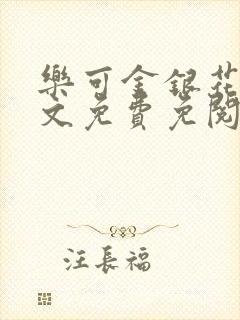 樂可金銀花
文免費免閱
汪長福